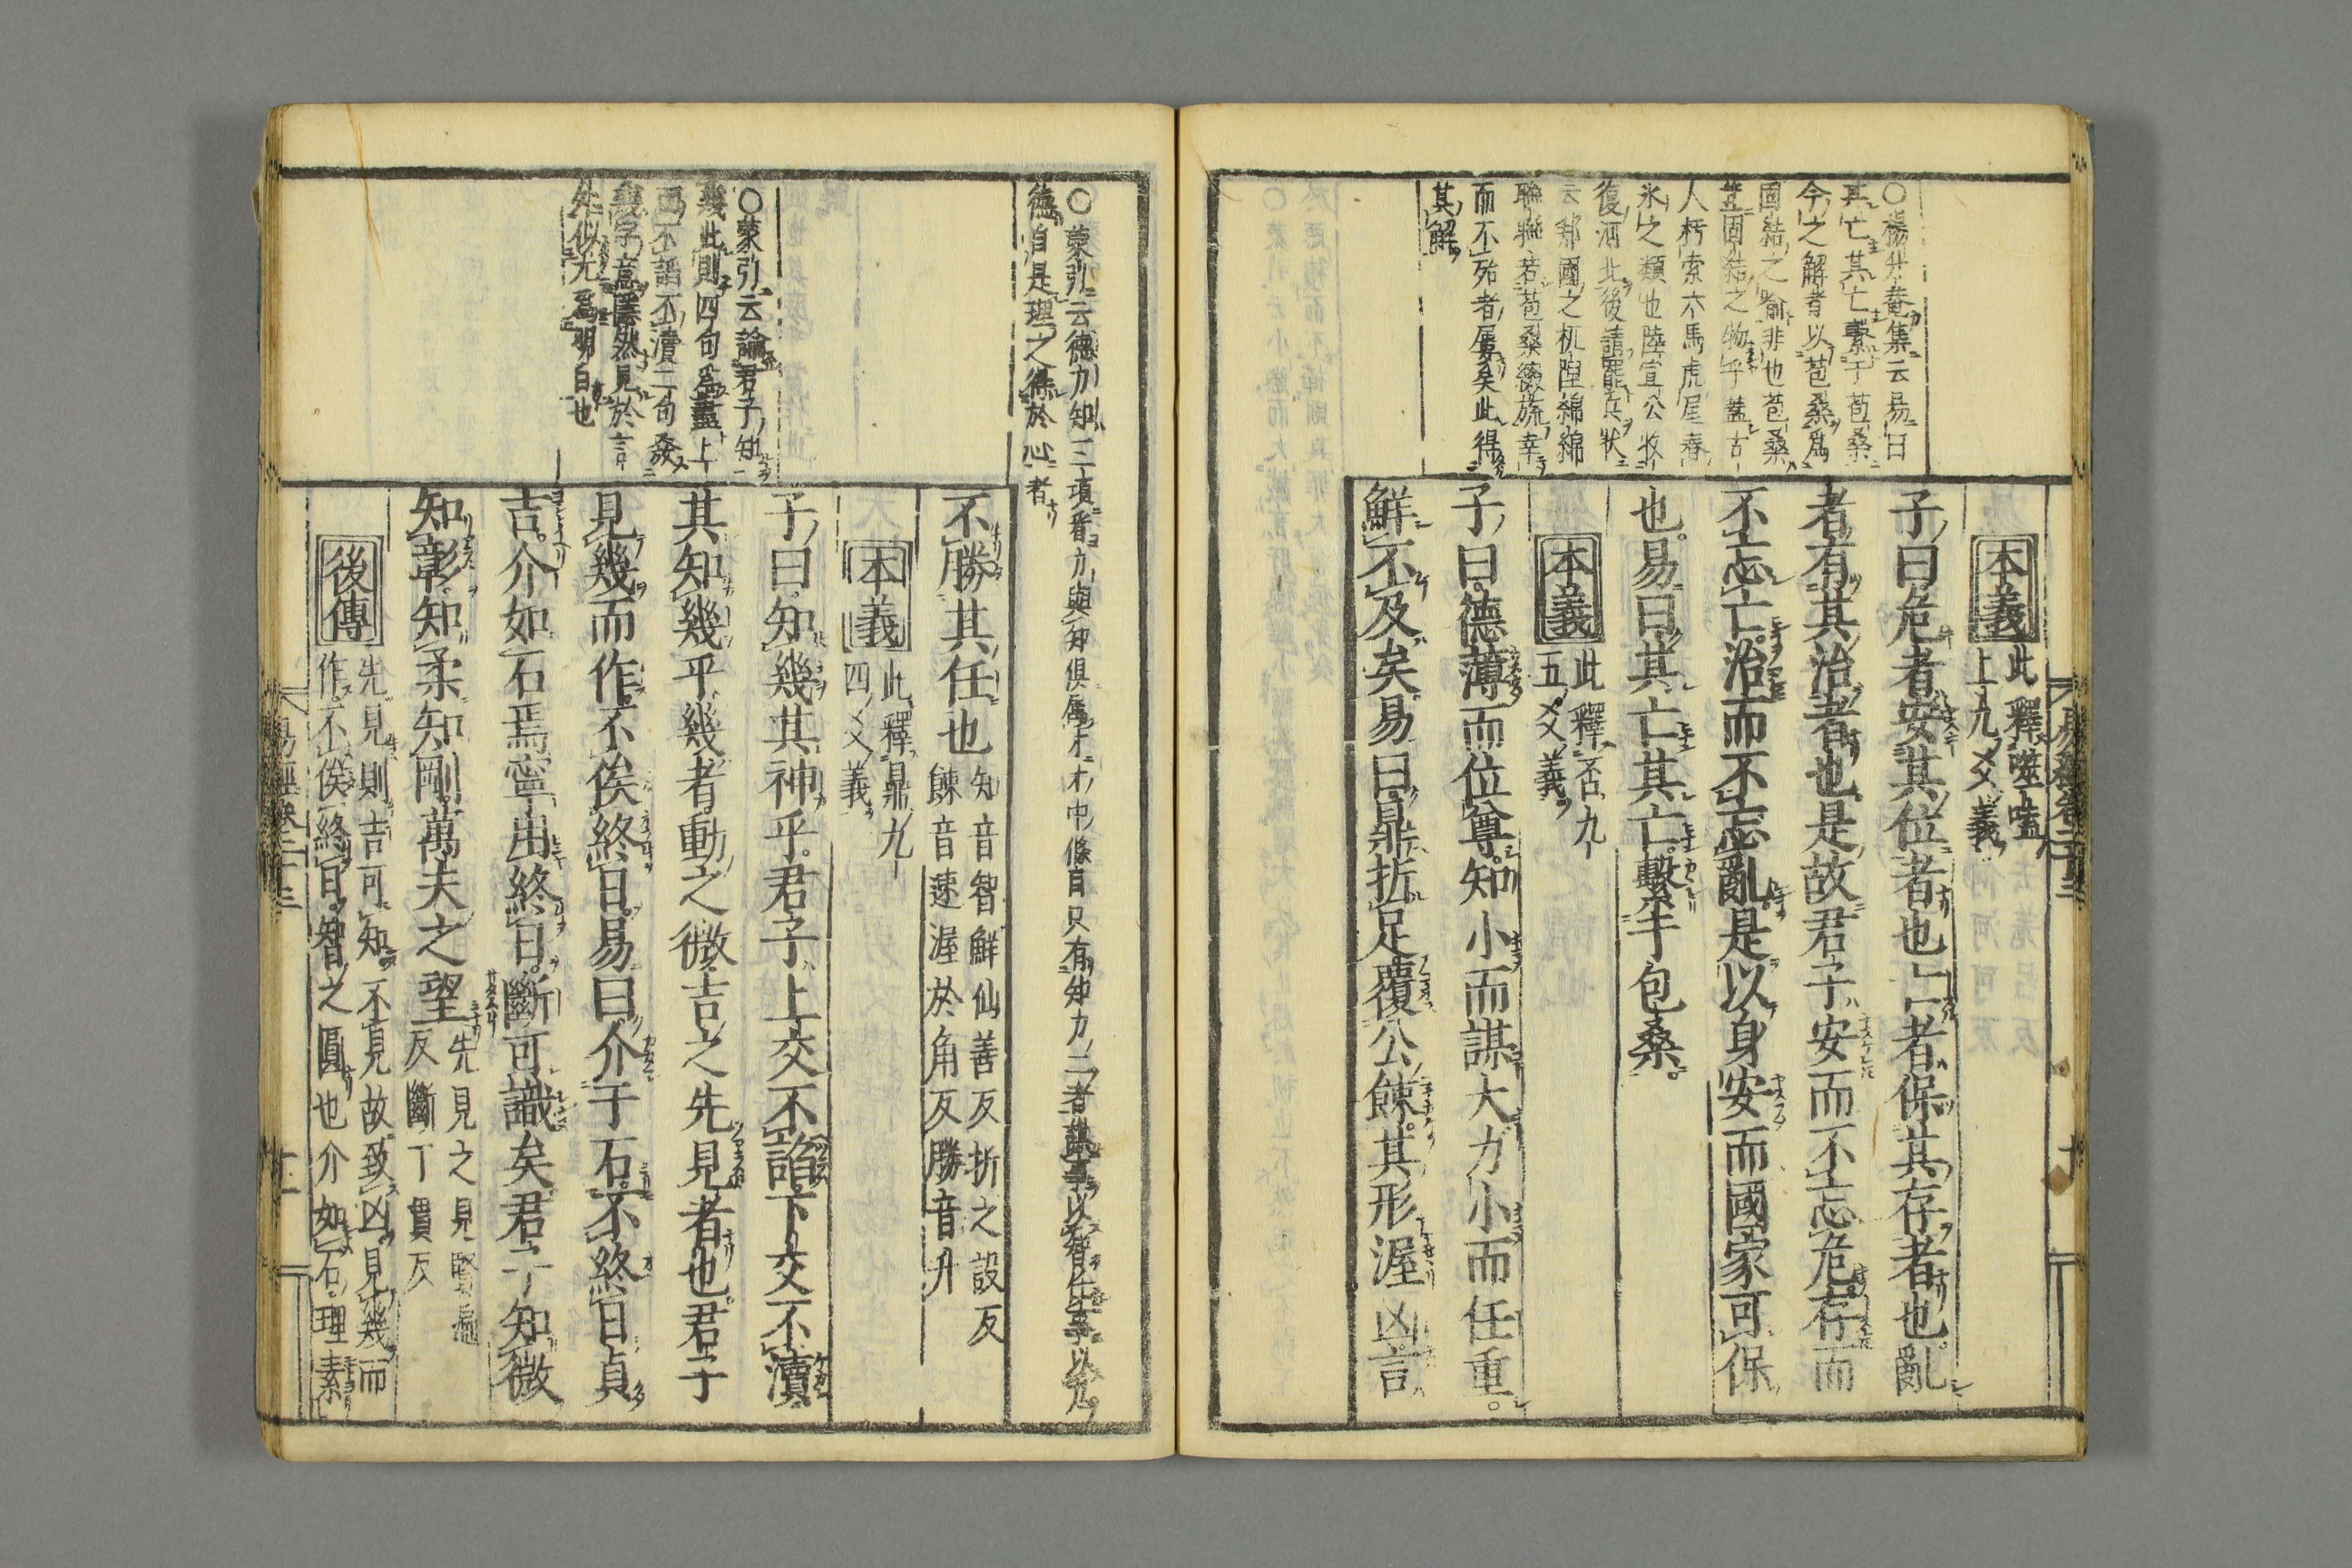 本義
此釋噬嗑
上九爻義
子曰危者安其位者也亡者保其存者也亂
者有其治者也是故君子安而不忘危存而
不忘亡治而不忘亂是以身安而國家可保
也易曰其亡其亡繫于包桑
本義
此釋否九
五爻義
子曰德薄而位尊知小而謀大力小而任重
鮮不及矣易曰鼎折足覆公餗其形渥凶言
○楊升菴集云易曰
其亡其亡繫于苞桑
今之解者以苞桑爲
固結之喻非也苞桑
豈固結之物乎蓋古
人朽索六馬虎尾春
氷之類也陸宣公收
復河北後請罷兵狀
云邦國之杌隉綿綿
聯聯若苞桑綴旒幸
而不殆者屢矣此得
其解
○蒙引云德力知三項看力與知俱屬才才中條自只有知力二者謀事以智任事以力
德自是理之得於心者
不勝其任也
知音智鮮仙善反折之設反
餗音速渥於角反勝音升
本義
此釋鼎九
四爻義
子曰知幾其神乎君子上交不諂下交不瀆
其知幾乎幾者動之微吉之先見者也君子
見幾而作不俟終日易曰介于石不終日貞
吉介如石焉寧用終日斷可識矣君子知微
知彰知柔知剛萬夫之望
先見之見賢遍
反斷丁貫反
後傳
先見則吉可知不見故致凶見幾而
作不俟終日智之圓也介如石理素
○蒙引云論君子知
幾此則四句爲盡上
面不諂不瀆二句發
幾字意隱然見於言
外似尤爲明白也
易經卷二十三
十一